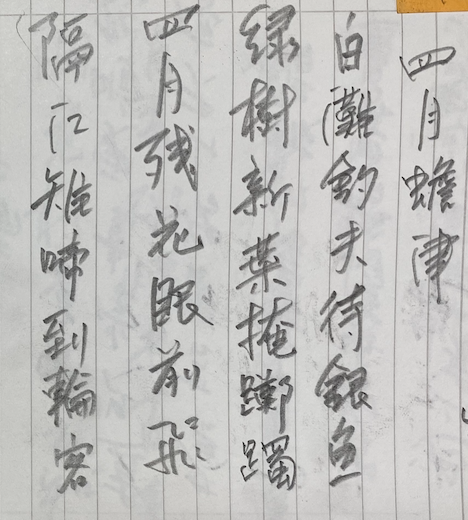 四月蟾津
白灘釣夫待銀魚
綠樹新葉掩躑躅
四月残花眼前飛
隔江雉啼到輪客